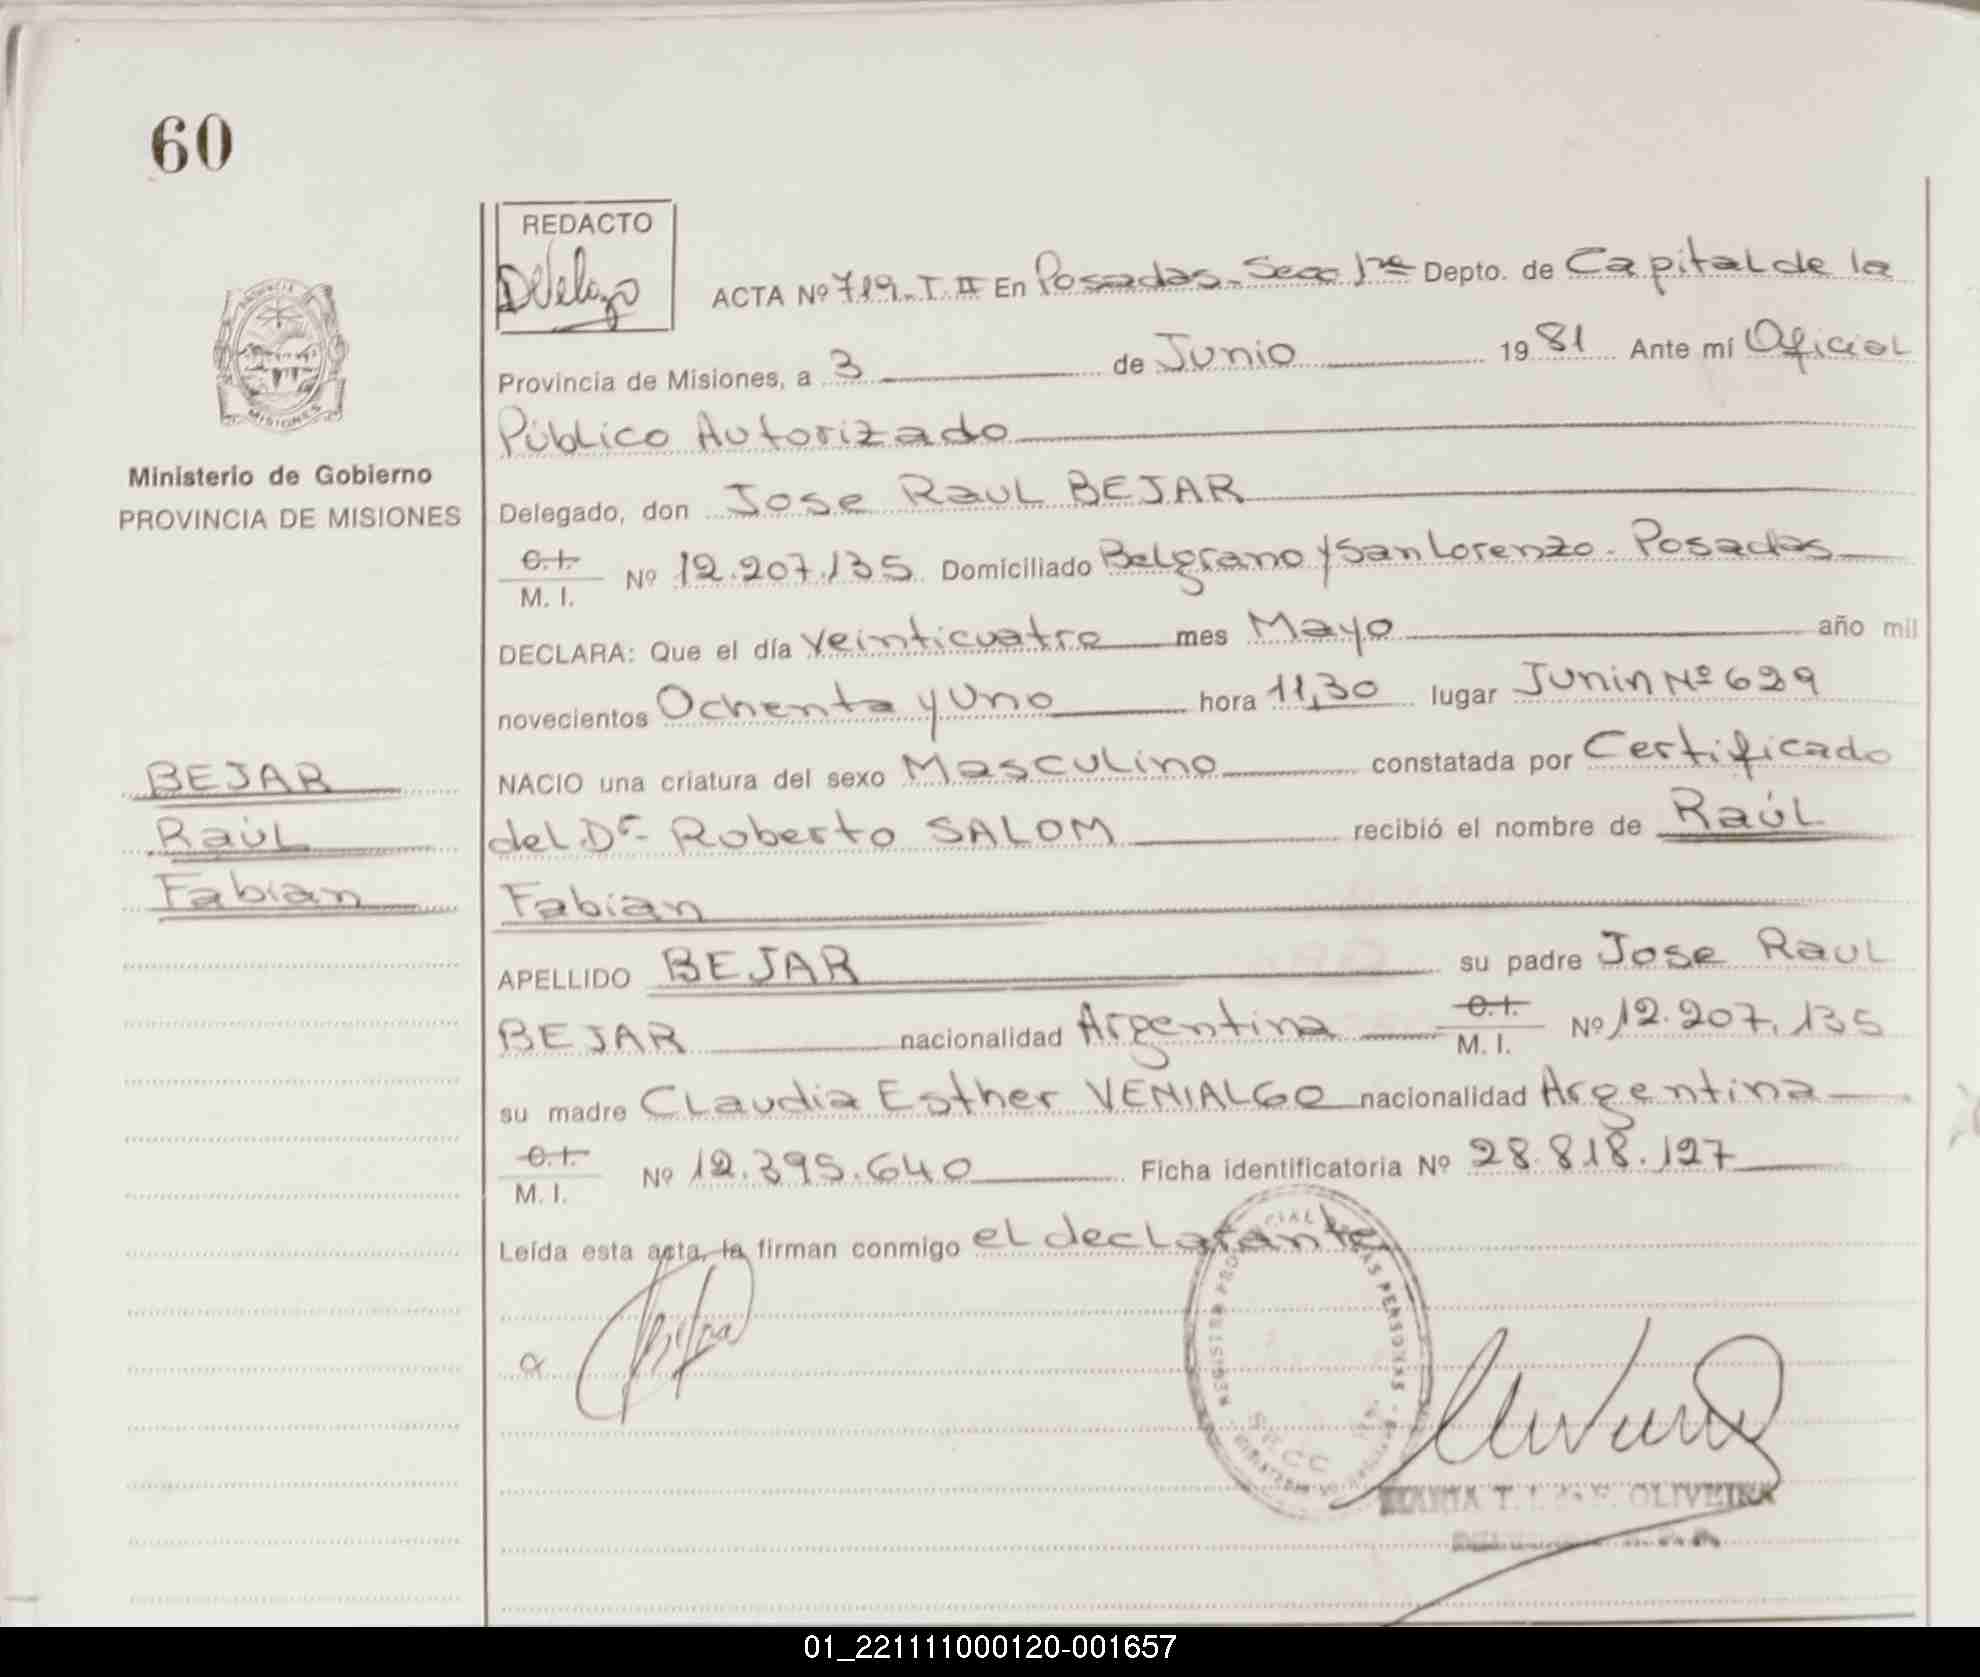 60
REDACTO
ACTA Nº 719 - T. II En Posadas - Secc 1ra Depto. de Capital de la
Provincia de Misiones, a 3 de Junio 1981 Ante mí Oficial
Público Autorizado
MISIONES
Ministerio de Gobierno
PROVINCIA DE MISIONES
Delegado, don Jose Raul BEJAR
C.I.
M. I. Nº 12.207.135 Domiciliado Belgrano y San Lorenzo. Posadas
DECLARA: Que el día veinticuatro mes Mayo año mil
novecientos Ochenta y Uno hora 11,30 lugar Junin Nº 629
NACIO una criatura del sexo Masculino constatada por Certificado
del Dr. Roberto SALOM recibió el nombre de Raúl
Fabian
BEJAR
Raúl
Fabian
APELLIDO BEJAR su padre Jose Raul
BEJAR nacionalidad Argentina C.I.
M. I. Nº 12.207.135
su madre Claudia Esther VENIALGO nacionalidad Argentina
C.I.
M. I. Nº 12.395.640 Ficha identificatoria Nº 28.818.127
Leída esta acta, la firman conmigo el declarante
REGISTRO PROVINCIAL DE LAS PERSONAS
SECC
MARIA T. OLIVEIRA
01_221111000120-001657